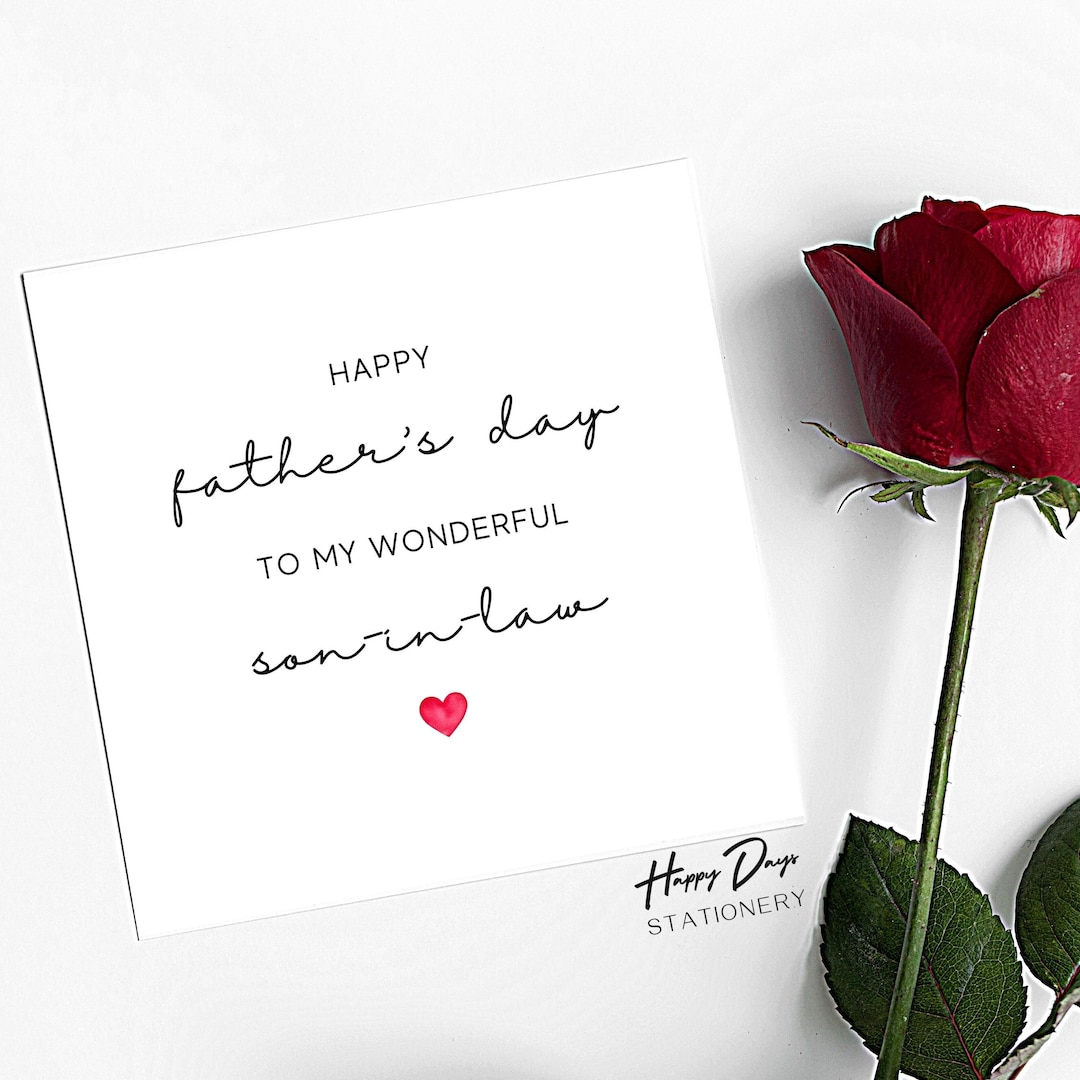 HAPPY
father's day
TO MY WONDERFUL
son-in-law
Happy Days
STATIONERY